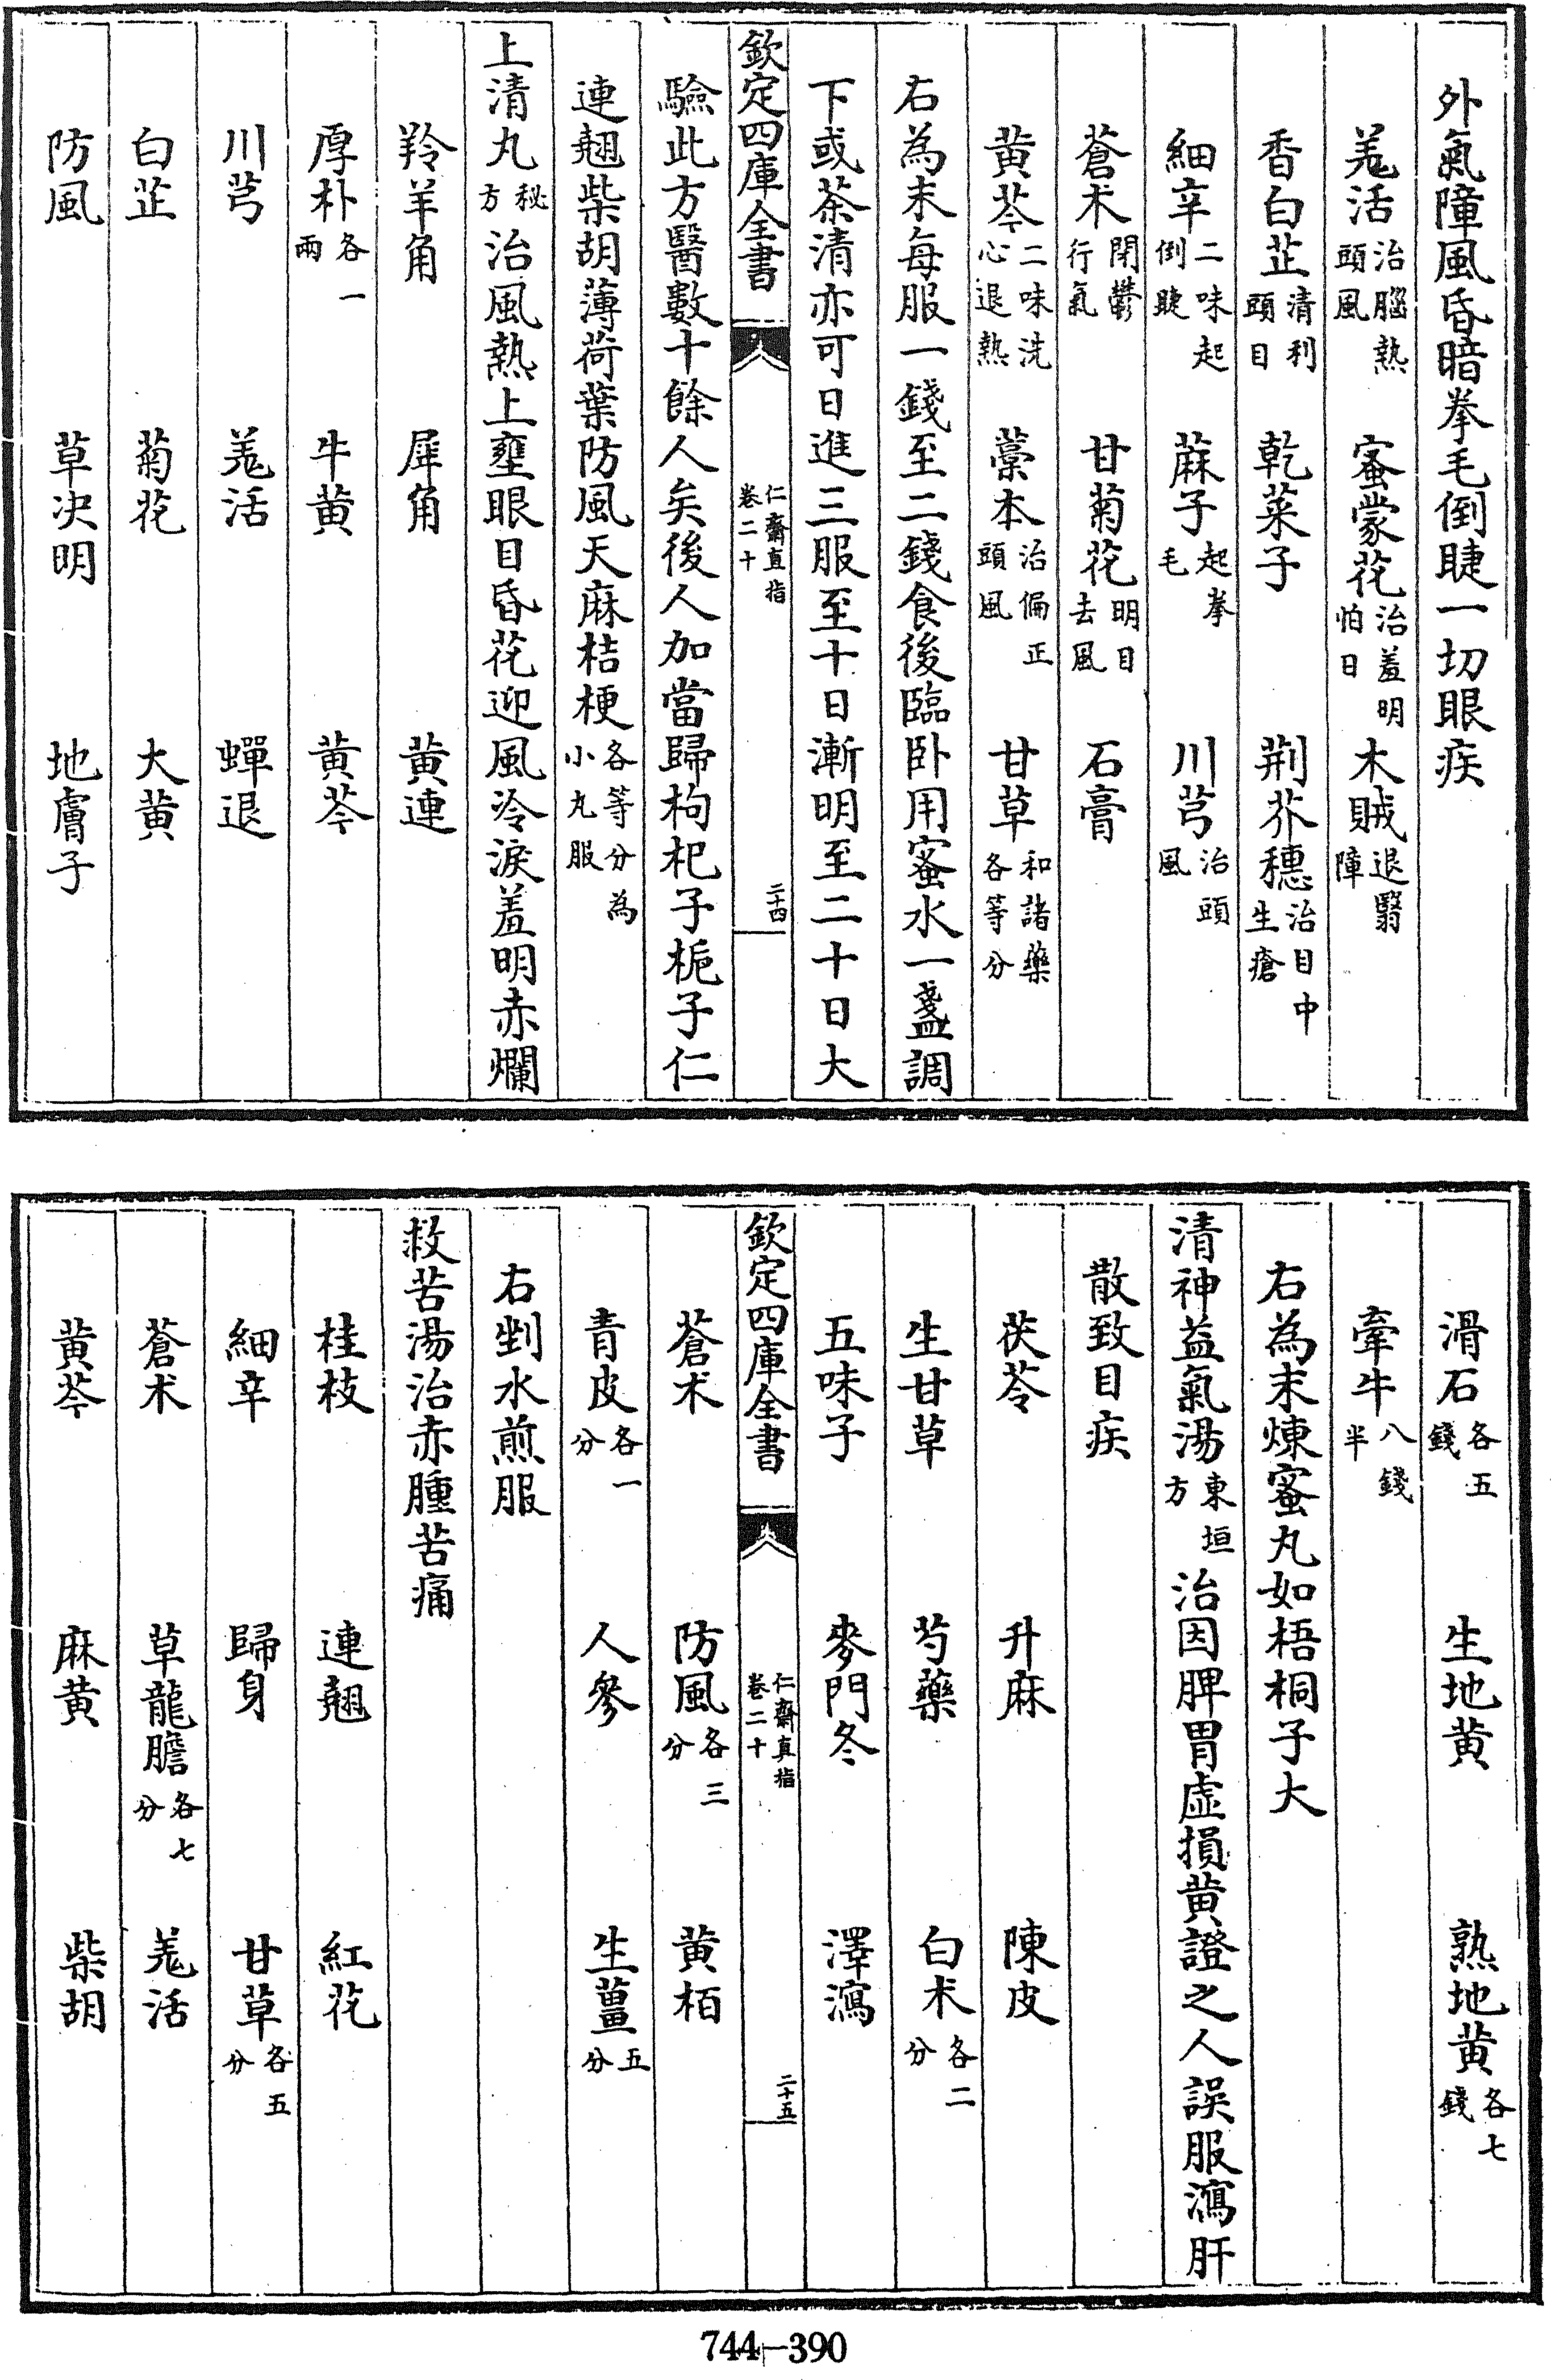 外氣障風昏暗拳毛倒睫一切眼疾
羗活治腦熱頭風 蜜蒙花治羞明怕日 木賊退翳障
香白芷清利頭目 乾菜子 荆芥穗治目中生瘡
細辛二味起倒睫 蔴子起拳毛 川芎治頭風
蒼术開鬱行氣 甘菊花明目去風 石膏
黄芩二味洗心退熱 藁本治偏正頭風 甘草和諸藥各等分
右為末每服一錢至二錢食後臨卧用蜜水一盞調
下或茶清亦可日進三服至十日漸明至二十日大
欽定四庫全書 仁齋直指卷二十 二十四
驗此方醫數十餘人矣後人加當歸枸杞子梔子仁
連翹柴胡薄荷葉防風天麻桔梗各等分為小丸服
上清丸秘方治風熱上壅眼目昏花迎風冷淚羞明赤爛
羚羊角 犀角 黄連
厚朴各一兩 牛黄 黄芩
川芎 羗活 蟬退
白芷 菊花 大黄
防風 草决明 地膚子
滑石各五錢 生地黄 熟地黄各七錢
牽牛八錢半
右為末煉蜜丸如梧桐子大
清神益氣湯東垣方治因脾胃虚損黄證之人誤服瀉肝
散致目疾
茯苓 升麻 陳皮
生甘草 芍藥 白术各二分
五味子 麥門冬 澤瀉
欽定四庫全書 仁齋直指卷二十 二十五
蒼术 防風各三分 黄栢
青皮各一分 人參 生薑五分
右剉水煎服
救苦湯治赤腫苦痛
桂枝 連翹 紅花
細辛 歸身 甘草各五分
蒼术 草龍膽各七分 羗活
黄芩 麻黄 柴胡
744-390